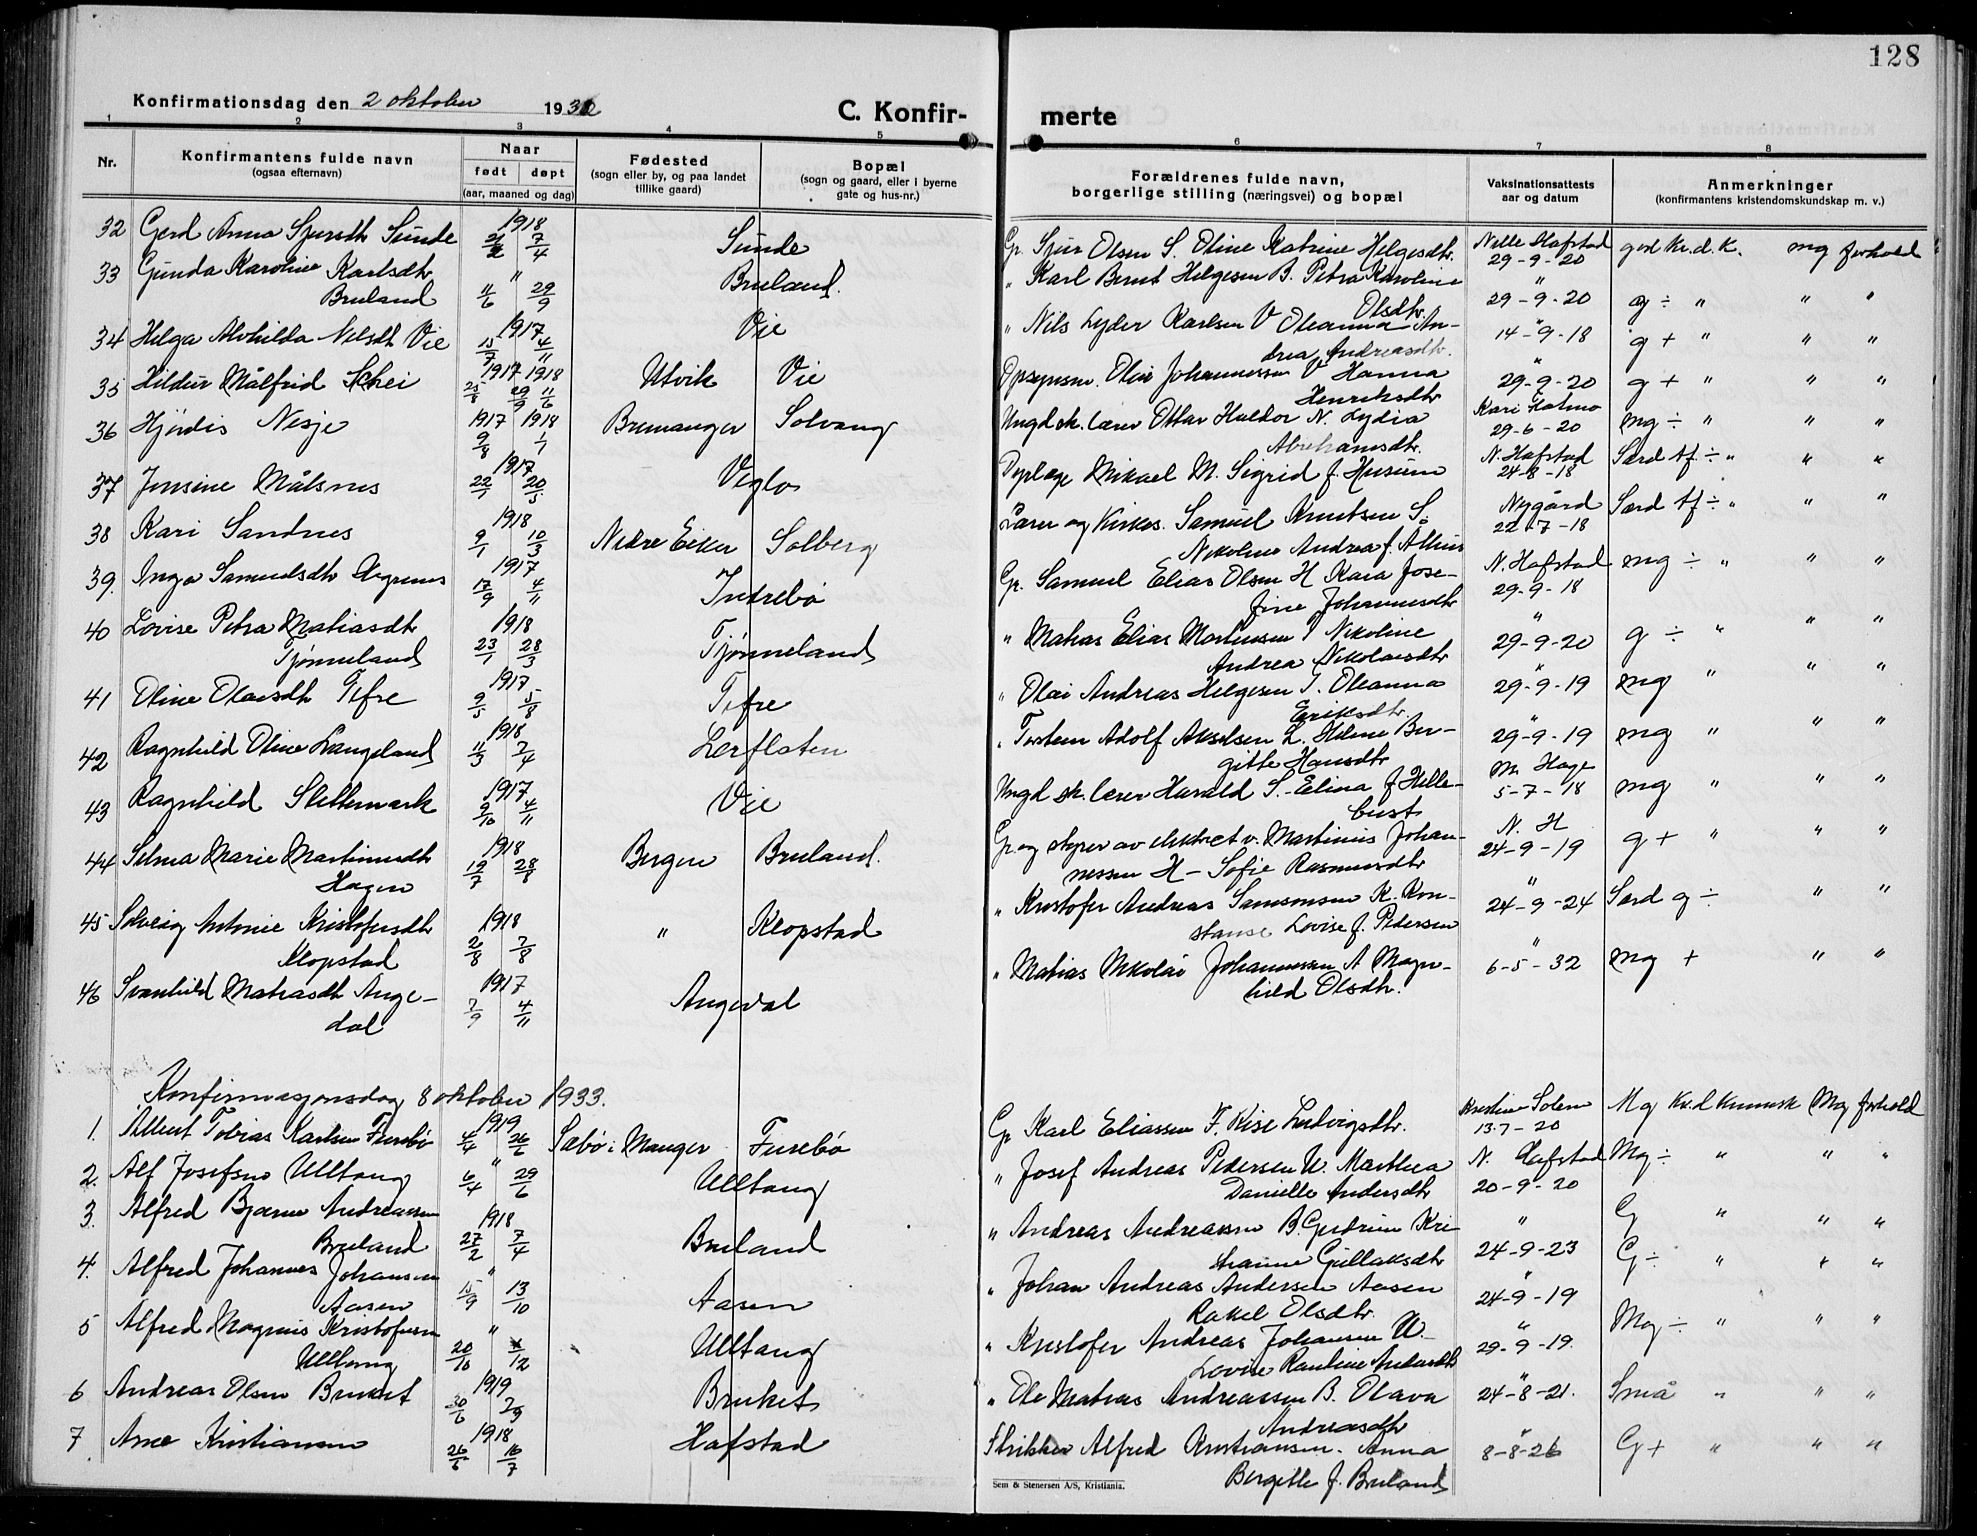 128
Konfirmationsdag den 2 oktober 1932
C. Konfir-
merte
1 2 3 4 5 6 7 8
Nr.
Konfirmantens fulde navn
(ogsaa efternavn)
Naar
født døpt
(aar, maaned og dag)
Fødested
(sogn eller by, og paa landet
tillike gaard)
Bopæl
(sogn og gaard, eller i byerne
gate og hus-nr.)
Forældrenes fulde navn,
borgerlige stilling (næringsvei) og bopæl
Vaksinationsattests
aar og datum
Anmerkninger
(konfirmantens kristendomskundskap m. v.)
32 Gerd Anna Sjursdtr Sunde 1918 7/4 Sunde Gr. Sjur Olsen S. Oline Katrine Helgesdtr. Nelle Hafstad 29-9-20 god kr.d.k. mg forhold
33 Gunda Karoline Karlsdtr " Bruland. " Karl Bernt Helgesen B. Petra Karoline "
Bruland 11/6 29/9 Olsdtr. 29-9-20 g ÷ " " "
34 Helga Alvhilda Nelsdtr Vie 1917 15/7 4/11 Vie " Nils Lyder Karlsen V Oleanna An- " 14-9-18 g + " " "
drea Andreasdtr.
35 Hildur Målfrid Skei 1917 1918 Utvik Vie Opsynsm. Olai Johannessen V Hanna " 29-9-20 g + " " "
Henriksdtr
36 Hjördis Nesje 1917 1918 9/8 1/1 Bremanger Solvang Ungd sk. lærer Ottar Haldor N. Lydia 29-6-20 mg ÷ " " "
Abrahamsdtr.
37 Jensine Målsnes 1917 22/1 20/5 Veglo Dyrlæge Mikael M. Sigrid f. Husum N. Hafstad 24-8-18 Særd tf ÷ " " "
38 Kari Sandnes 1918 9/1 10/3 Nedre Eiker Solberg Lærer og Kirkes. Samuel Knutsen S. Nygård 22-7-18 Særd tf ÷ " " "
Nikoline Andrea f.
39. Inga Samuelsdtr 1917 17/9 4/11 Indrebø Gr. Samuel Elias Olsen H Kaia Jose- N. Hafstad 29-9-18 mg ÷ " " "
fine Johannesdtr
40 Lovise Petra Matiasdtr 1918 " Matias Elias Martinusen T Nikoline "
Tjønneland 23/1 28/3 Tjønneland Andrea Nikolaisdtr 29-9-20 g ÷ " " "
41 Oline Olaisdtr Tefre 1917 9/5 5/8 Tefre " Olai Andreas Helgesen T. Oleanna " 29-9-19 mg " " "
Eriksdtr.
42 Ragnhild Oline Langeland 1918 11/3 7/4 Lerflaten " Torstein Adolf Akselsen L. Helene Ber- " 29-9-19 mg " " "
gitte Hansdtr
43 Ragnhild Slettemark 1917 9/10 4/11 Vie Ungd sk. lærer Harald S. Elina f Helle- M. Hage 5-7-18 mg " " "
bust
44 Selma Marie Martinusdtr 1918 19/7 28/8 Bergen Bruland. Gr. og styrer av elektrct v. Martinus Johan- N. H 24-9-19 g + " " "
Hagen nessen H - Sofie Rasmusdtr
45 Solveig Antonie Kristofersdtr 1918 " Klopstad " Kristofer Andreas Samsonsen K. Kon- " 24-9-24 Særd g ÷ " "
Klopstad 2/8 7/8 stanse Lovise f. Pedersen
46 Svanhild Matiasdtr Ange- 1917 7/9 4/11 Angedal " Matias Nikolai Johannessen A Magn- " 6-5-32 mg + " "
dal hild Olsdtr.
Konfirmasjonsdag 8 oktober 1933.
1. Albert Tobias Karlsen Furebø 1919 4/4 26/6 Sæbø i Manger Furebø Gr Karl Eliassen F. Lise Ludvigsdtr. Kristine Solem 13.7-20 Mg kr.d kunnsk Mg forhold
2. Alf Josefsen Ulltang " 6/4 29/6 Ulltang " Josef Andreas Pedersen U. Marthea N. Hafstad Mg ÷ " " "
Danielle Andersdtr 20-9-20
3. Alfred Bjarne Andreassen 1918 " Andreas Andreassen B. Gudrun Kri- " G " " "
Bruland 27/2 7/4 Bruland stianne Gullaksdtr 24-9-23
4. Alfred Johannes Johansen " " Johan Andreas Andersen Aasen " G ÷ " " "
Aasen 15/9 13/10 Aasen Rakel Olsdtr. 24-9-19
5 Alfred Magnus Kristofersen " " Kristofer Andreas Johansen U. " Mg ÷ " " "
Ulltang 20/10 /12 Ulltang Lovise Pauline Andersdtr 29-9-19.
6 Andreas Olsen Bruket 1919 30/6 7/9 Bruket " Ole Matias Andreassen B. Olava " 24-8-21. Små " " "
Andreasdtr
7 Arne Kristiansen 1918 26/6 16/7 Hafstad Strikker Alfred Kristiansen. Anna " 8-8-26 G + " " "
Bergitte f. Bruland
Sem & Stenersen A/S, Kristiania.